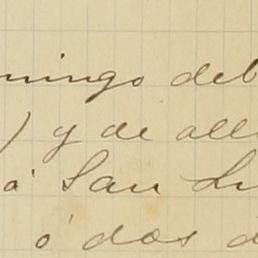 mingo deb
) y de allí
á San Lu
ó dos d